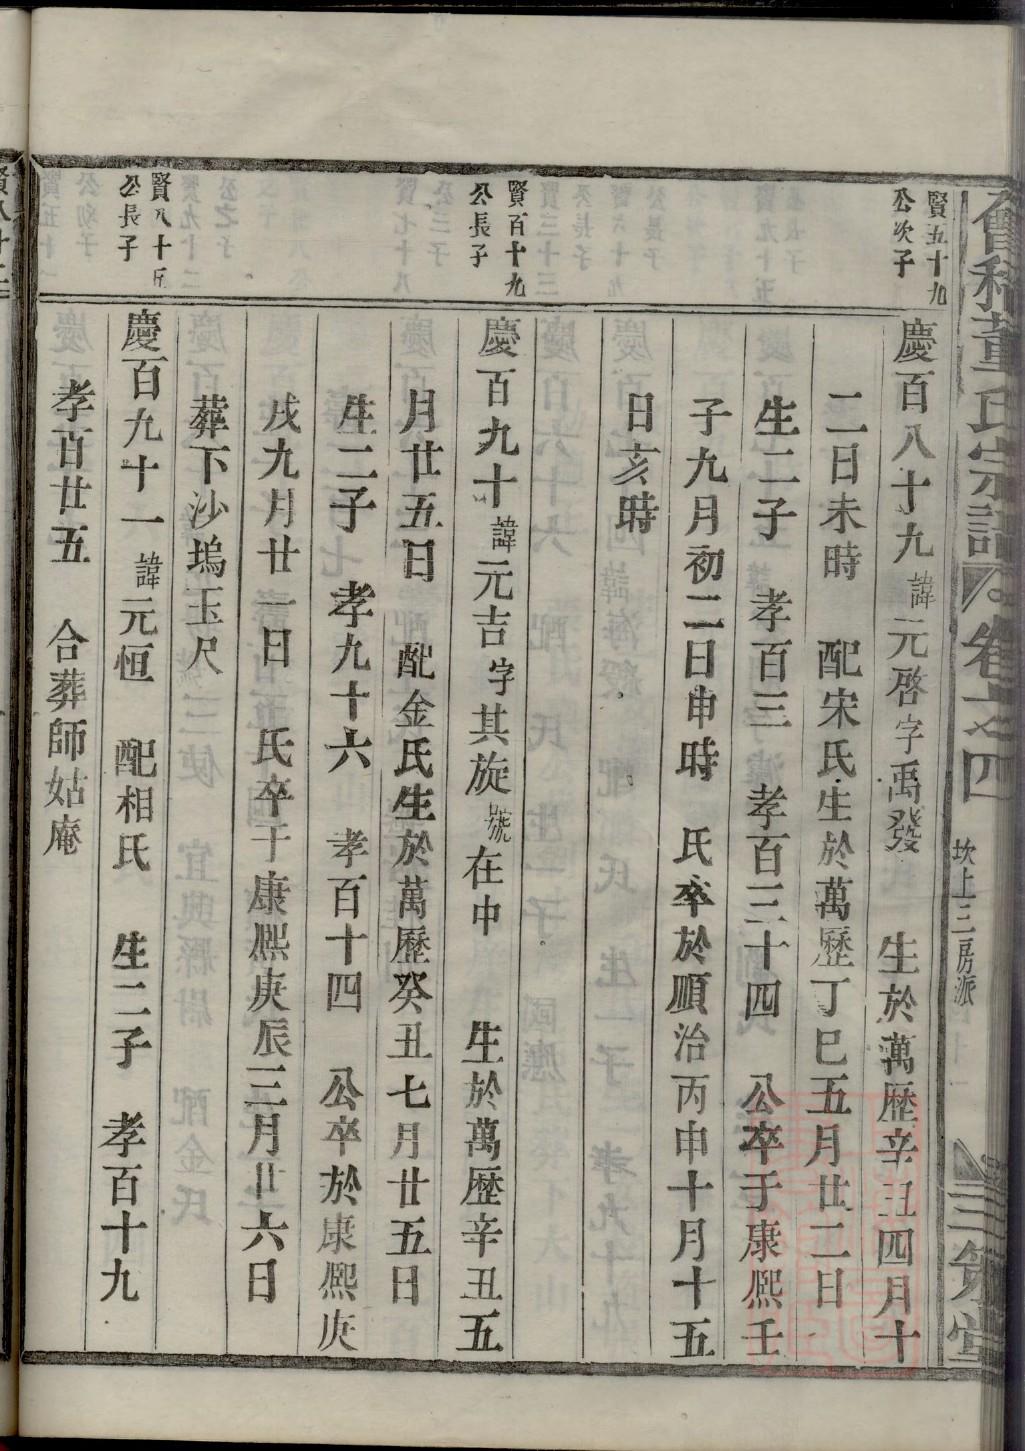 會稽董氏宗譜 卷十之四 坎上三房派 三策堂
賢五十九
公次子
慶百八十九諱元啓字禹發 生於萬歷辛丑四月十
二日未時 配宋氏生於萬歷丁巳五月廿二日
生二子 孝百三 孝百三十四 公卒于康熙壬
子九月初二日申時 氏卒於順治丙申十月十五
日亥時
賢百十九
公長子
慶百九十諱元吉字其旋號在中 生於萬歷辛丑五
月廿五日 配金氏生於萬歷癸丑七月廿五日
生二子 孝九十六 孝百十四 公卒於康熙庚
戌九月廿一日 氏卒于康熙庚辰三月廿六日
葬下沙塢玉尺
賢八十五
公長子
慶百九十一諱元恒 配相氏 生二子 孝百十九
孝百廿五 合葬師姑庵